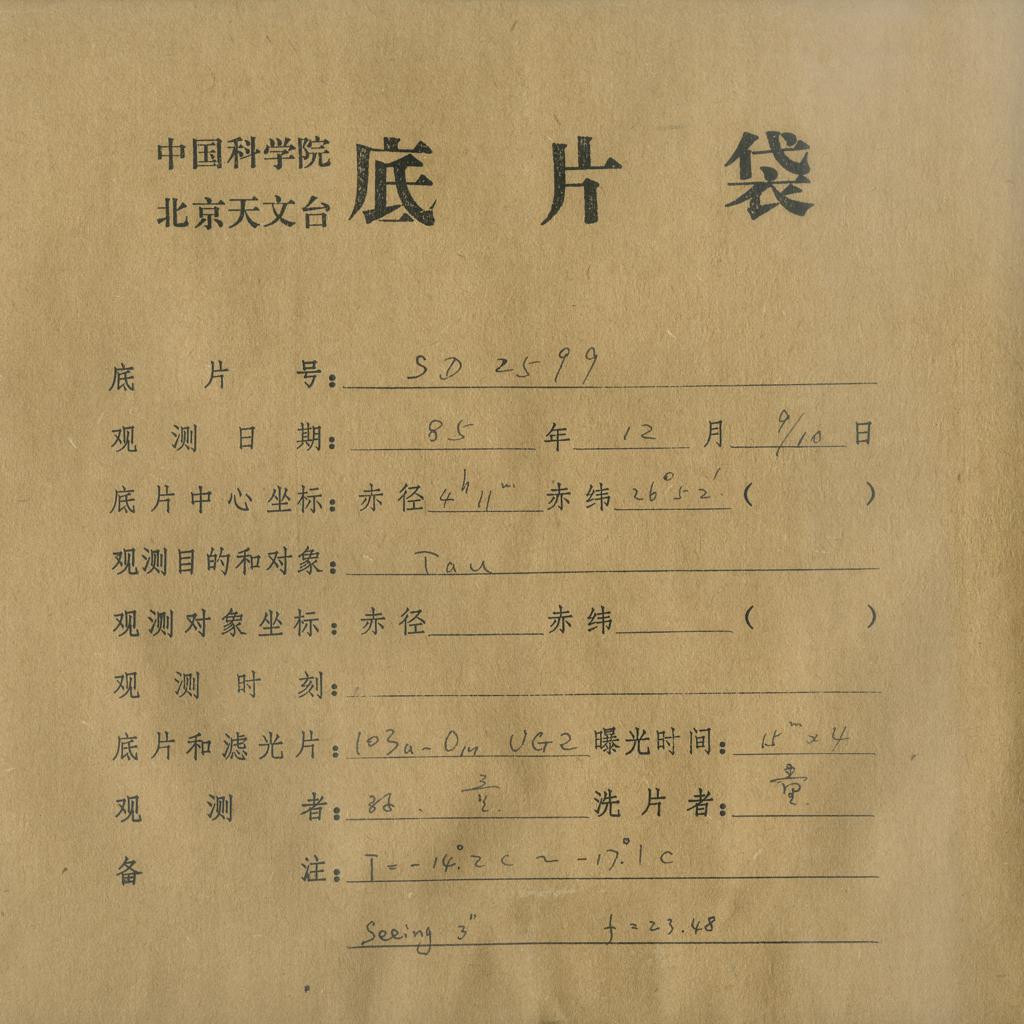 中国科学院
北京天文台
底片袋
底片号: SD 2599
观测日期: 85 年 12 月 9/10 日
底片中心坐标: 赤径 4h 11m 赤纬 26°52′. ( )
观测目的和对象: Tau
观测对象坐标: 赤径 赤纬 ( )
观测时刻:
底片和滤光片: 103a-O UG2 曝光时间: 15m×4
观测者: 洗片者: 童
备注: T=-14.°2 C ~ -17.°1 C
Seeing 3″ f=23.48